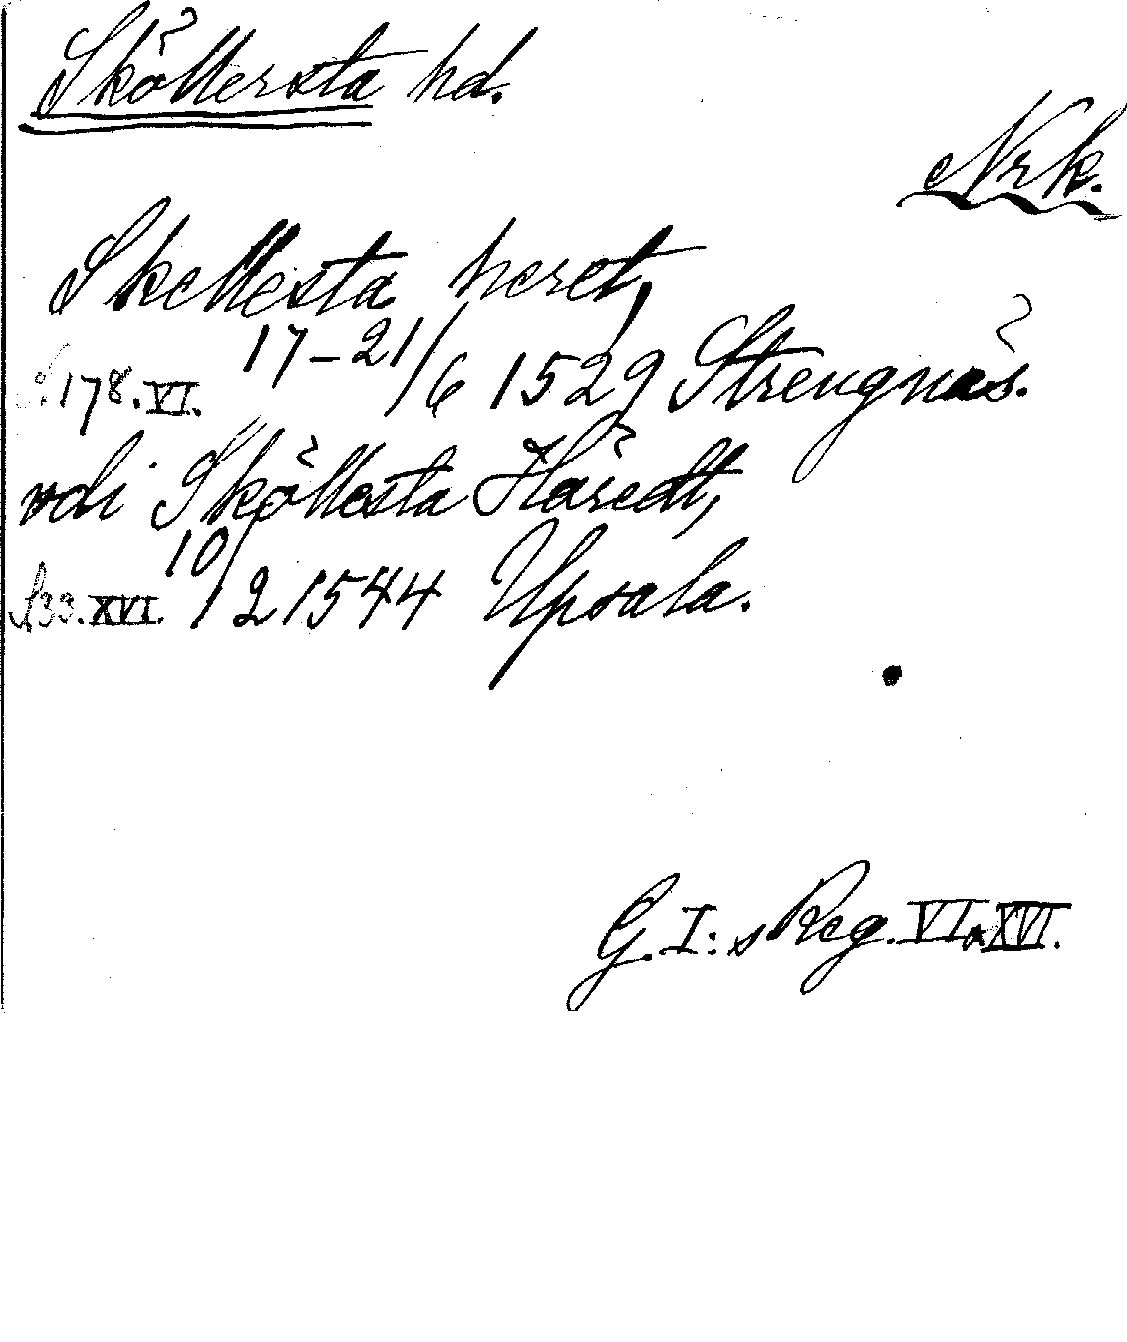 Sköllersta hd.
Nrk.
Skellesta heret,
17-21/6 1529 Strengnäs.
s. 178. VI.
vdi Sköllesta Häredt,
10/2 1544 Upsala.
s. 33. XVI.
G. I:s Reg. VI. XVI.